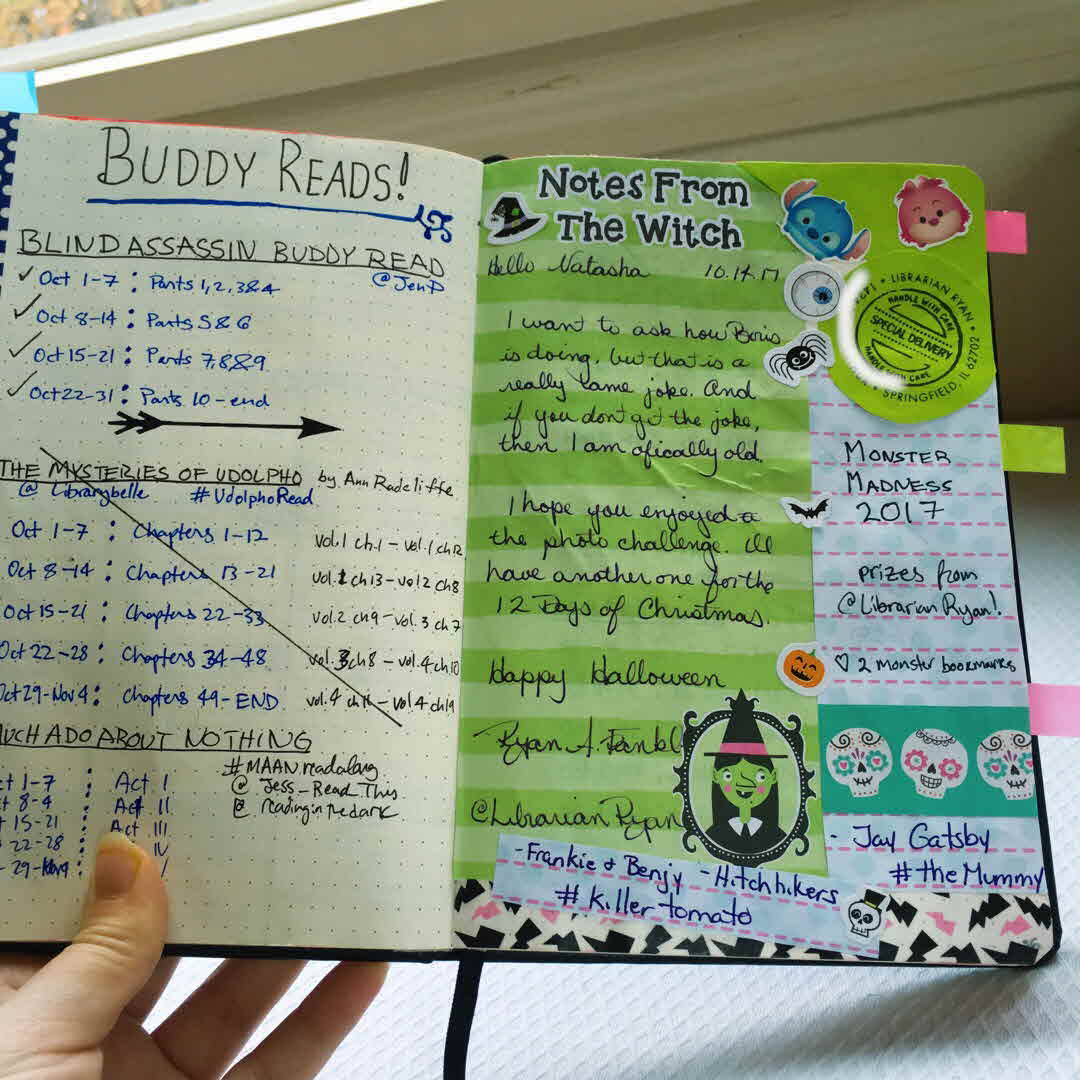 BUDDY READS!
BLIND ASSASSIN BUDDY READ
@JenP
✓ Oct 1-7 : Parts 1, 2, 3 & 4
✓ Oct 8-14 : Parts 5 & 6
✓ Oct 15-21 : Parts 7, 8 & 9
✓ Oct 22-31 : Parts 10 - end
THE MYSTERIES OF UDOLPHO by Ann Radcliffe
@Librarybelle #UdolphoRead
Oct 1-7 : Chapters 1-12 vol.1 ch.1 - vol.1 ch12
Oct 8-14 : Chapters 13-21 vol.1 ch13 - vol2 ch8
Oct 15-21 : Chapters 22-33 vol.2 ch9 - vol.3 ch7
Oct 22-28 : Chapters 34-48 vol.3 ch8 - vol.4 ch10
Oct 29-Nov 4 : Chapters 49-END vol.4 ch11 - vol 4 ch19
MUCH ADO ABOUT NOTHING
#MAANreadalong
@Jess_Read_This
@readinginthedark
ct 1-7 : Act I
8-4 : Act II
15-21 : Act III
22-28 : IV
29-Nov 4
Notes From
The Witch
Hello Natasha 10.14.17
I want to ask how Boris
is doing, but that is a
really lame joke. And
if you don't get the joke,
then I am ofically old.
I hope you enjoyed
the photo challenge. Ill
have another one for the
12 Days of Christmas.
Happy Halloween
Ryan A.
@Librarian Ryan
- Frankie & Benjy - Hitchhikers
#killertomato
LIBRARIAN RYAN
HANDLE WITH CARE
SPECIAL DELIVERY
HANDLE WITH CARE
SPRINGFIELD, IL 62702
MONSTER
MADNESS
2017
prizes from
@LibrarianRyan!
♡ 2 monster bookmarks
- Jay Gatsby
#theMummy